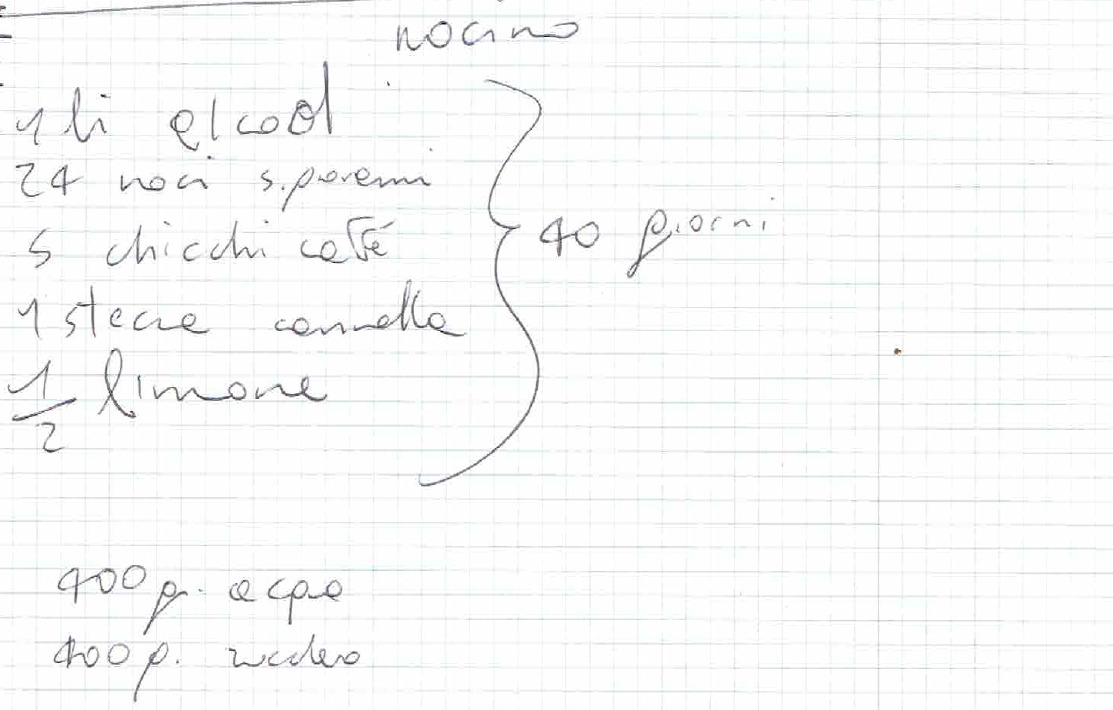 nocino
1 li alcool
24 noci
5 chicchi caffé
1 stecca cannella
1/2 limone
40 giorni
400 g. acqua
400 g. zucchero